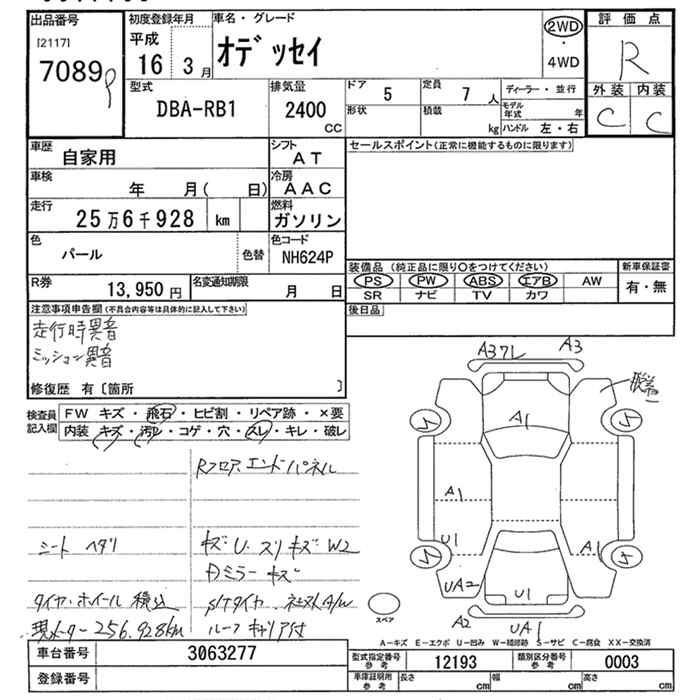 出品番号 初度登録年月 車名・グレード 2WD 評価点
[2117] 平成
7089 16 3月 オデッセイ ・ 4WD R
型式 排気量 ドア 定員 ディーラー・並行 外装 内装
DBA-RB1 2400 cc 5 7人 モデル年式 年 C C
形状 積載 kg ハンドル 左・右
車歴 自家用 シフト AT セールスポイント(正常に機能するものに限ります)
車検 年 月( 日) 冷房 AAC
走行 25万6千928 km 燃料 ガソリン
色 パール 色替 色コード NH624P
装備品(純正品に限り○をつけてください) 新車保証書
R券 13,950円 名変通知期限 月 日 PS PW ABS エアB AW 有・無
SR ナビ TV カワ
注意事項申告欄(不具合内容等は具体的に記入して下さい) 後日品
走行時異音
ミッション異音
修復歴 有〔箇所 〕
A37L A3
検査員記入欄 FW キズ・飛石・ヒビ割・リペア跡・×要
内装 キズ・汚れ・コゲ・穴・スレ・キレ・破レ
A1
Rフロアエンドパネル
A1
シート ヘタリ キズ U. スリキズ W2 U1 A1
Dミラーキズ UA2 U1
タイヤ・ホイール 積込 S/Tタイヤ
現メーター256.928km ルーフキャリア付 スペア A2 UA1
A-キズ E-エクボ U-凹み W-補修跡 S-サビ C-腐食 XX-交換済
車台番号 3063277 型式指定番号 参考 12193 類別区分番号 参考 0003
登録番号 車庫証明用 参考 長さ cm 幅 cm 高さ cm